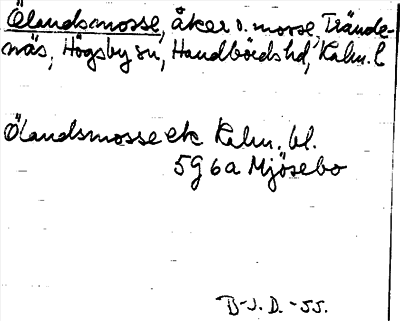 Ölandsmosse, åker o. mosse, Trände-
näs, Högsby sn, Handbörds hd, Kalm. l
Ölandsmosse ek Kalm. bl.
5G6a Mjösebo
B-J. D. -55.